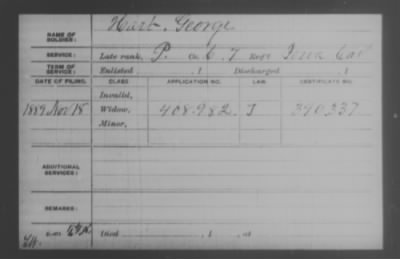 NAME OF SOLDIER: Hart, George
SERVICE: Late rank, P. Co. C, 7 Reg't Iowa Cav
TERM OF SERVICE: Enlisted , 1 Discharged , 1
DATE OF FILING. CLASS APPLICATION NO. LAW. CERTIFICATE NO.
Invalid,
1889 Nov 18 Widow, 408.982. J 340.337
Minor,
ADDITIONAL SERVICES:
REMARKS:
Died , 1 , at